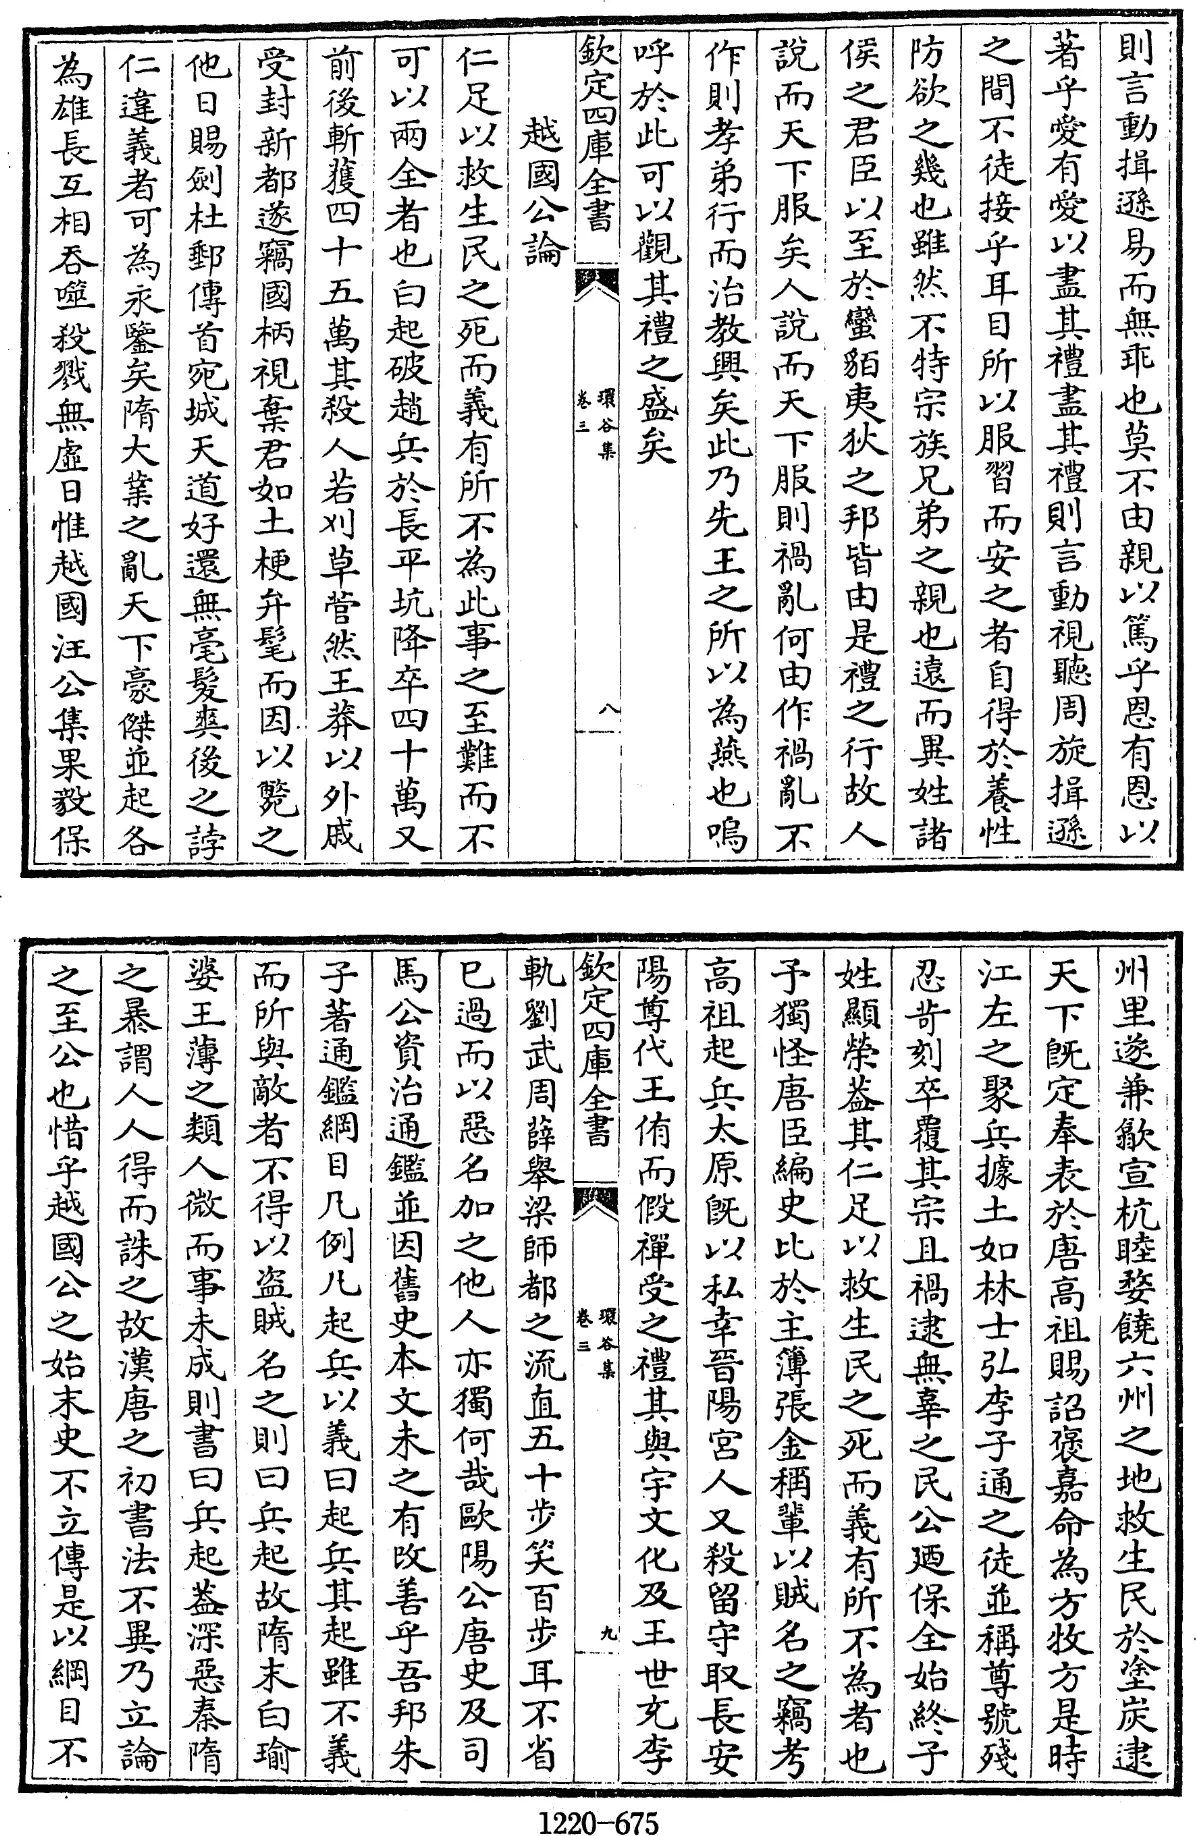 則言動揖遜易而無乖也莫不由親以篤乎恩有恩以
著乎愛有愛以盡其禮盡其禮則言動視聽周旋揖遜
之間不徒接乎耳目所以服習而安之者自得於養性
防欲之幾也雖然不特宗族兄弟之親也遠而異姓諸
侯之君臣以至於蠻貊夷狄之邦皆由是禮之行故人
說而天下服矣人說而天下服則禍亂何由作禍亂不
作則孝弟行而治教興矣此乃先王之所以為燕也嗚
呼於此可以觀其禮之盛矣
欽定四庫全書
環谷集
卷三
八
越國公論
仁足以救生民之死而義有所不為此事之至難而不
可以兩全者也白起破趙兵於長平坑降卒四十萬又
前後斬獲四十五萬其殺人若刈草菅然王莽以外戚
受封新都遂竊國柄視棄君如土梗弁髦而因以斃之
他日賜劍杜郵傳首宛城天道好還無毫髮爽後之誇
仁違義者可為永鑒矣隋大業之亂天下豪傑並起各
為雄長互相吞噬殺戮無虛日惟越國汪公集果毅保
州里遂兼歙宣杭睦婺饒六州之地救生民於塗炭逮
天下既定奉表於唐高祖賜詔褒嘉命為方牧方是時
江左之聚兵據土如林士弘李子通之徒並稱尊號殘
忍苛刻卒覆其宗且禍逮無辜之民公廼保全始終子
姓顯榮葢其仁足以救生民之死而義有所不為者也
予獨怪唐臣編史比於主簿張金稱輩以賊名之竊考
高祖起兵太原既以私幸晉陽宮人又殺留守取長安
陽尊代王侑而假禪受之禮其與宇文化及王世充李
欽定四庫全書
環谷集
卷三
九
軌劉武周薛舉梁師都之流直五十步笑百步耳不省
已過而以惡名加之他人亦獨何哉歐陽公唐史及司
馬公資治通鑑並因舊史本文未之有改善乎吾邦朱
子著通鑑綱目凡例凡起兵以義曰起兵其起雖不義
而所與敵者不得以盜賊名之則曰兵起故隋末白瑜
娑王薄之類人微而事未成則書曰兵起葢深惡秦隋
之暴謂人人得而誅之故漢唐之初書法不異乃立論
之至公也惜乎越國公之始末史不立傳是以綱目不
1220-675